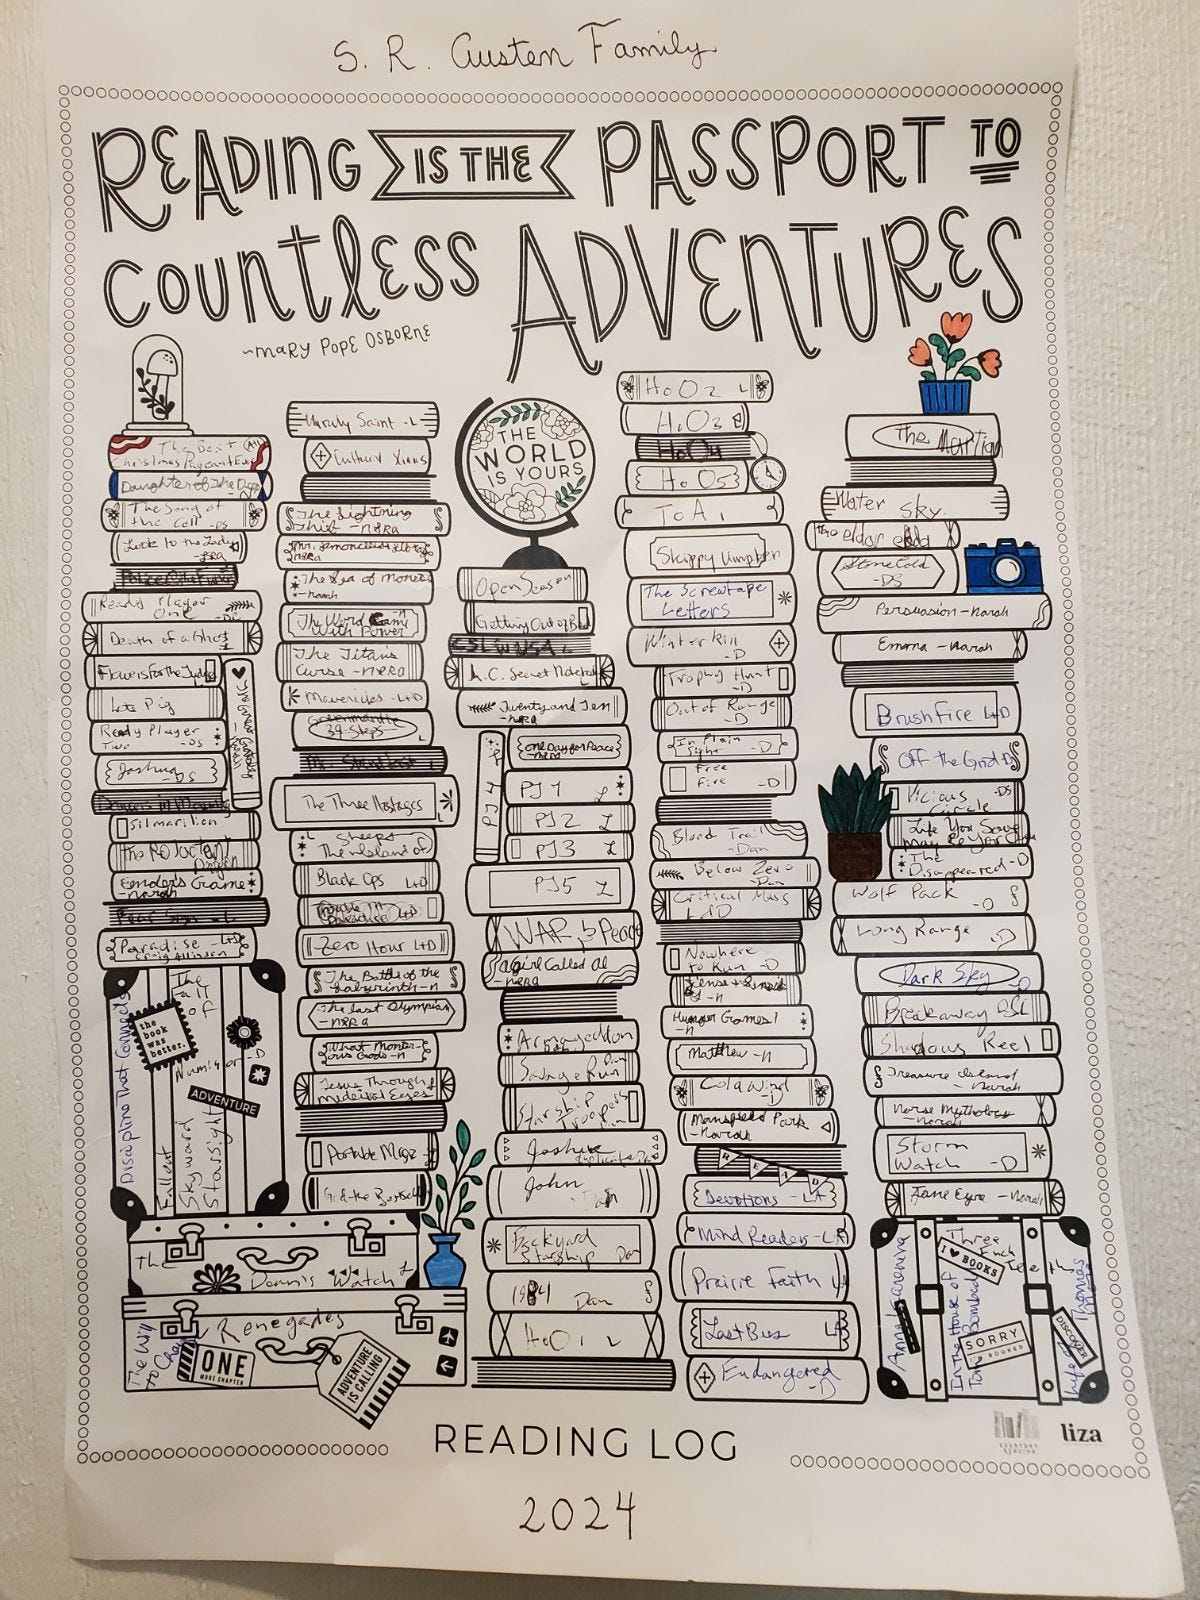 S. R. Austen Family
READING IS THE PASSPORT TO
COUNTLESS ADVENTURES
~MARY POPE OSBORNE
The Best
Christmas Pageant Ever
Daughter of the Deep
The Song of
the Cell -DS
Luck to the Lady
Ready Player
One
Death of a Ghost
Flowers for the Judge
Late Pig
Ready Player
Two -DS
Joshua -DS
Silmarilion
The Reluctant
Dragon
Ender's Game
-narah
Paradise -L+D
Craig Allinson
Discipline that Connects
The
Fall
of
Numinor -D
the
book
was
better.
ADVENTURE
Fallout
Skyward
Starsight
The
Dean's Watch
The Will
to Change
Renegades
ONE
MORE CHAPTER
ADVENTURE
IS CALLING
Unruly Saint -L
The Lightning
Thief -nara
The Sea of Monsters
-narah
The Word Game
With Power
The Titans
Curse -nara
Mavericks -L+D
39 Steps
L
The Three Hostages
L
Sheeps
The island of
Black Ops L+D
Trouble in
Paradise L+D
Zero Hour L+D
The Battle of the
Labyrinth -n
The last Olympian
-nara
Jesus Through
Mideival Eyes
Portable Magic
THE
WORLD
IS YOURS
Open Season
Getting Out of Bed
CSL W USA L
A.C. Secret Notebook
Twenty and Ten
-nara
One Day for Peace
-nara
PJ 4
PJ 1 L
PJ 2 L
PJ 3 L
PJ 5 L
WAR & Peace
A girl Called Al
-nara
Armageddon
Savage Run
Starship
Troopers
Joshua
John
Dan
Backyard
Starship Dan
1984 Dan
HoO 1 L
HoO 2 L
HoO 3
HoO 4
HoO 5
ToA 1
Skippy
The Screwtape
Letters
Winterkill
-D
Trophy Hunt
-D
Out of Range
-D
In Plain
Sight -D
Free
Fire -D
Blood Trail
-Dan
Below Zero
-Dan
Critical Mass
L+D
Nowhere
to Run -D
Hunger Games 1
-n
Matthew -n
Cold Wind
-D
Mansfield Park
-Narah
READ
Devotions -LA
Mind Readers -LA
Prairie Faith LA
Last Bus LA
Endangered
-D
The Martian
Water Sky
The elder edda
Stone Cold
-DS
Persuasion -Narah
Emma -Narah
Brushfire L+D
Off the Grid D
Vicious -DS
Circle
Life You Save
May Be Your Own
The
Disappeared -D
Wolf Pack
-D
Long Range
-D
Dark Sky
-D
Breakaway
Shadows Reel
Treasure Island
-Narah
Norse Mythology
-narah
Storm
Watch -D
Jane Eyre -Narah
Anna Karenina
Three
I ♥ BOOKS
In the House of
Tom Bombadil
SORRY
I'M BOOKED
DISCOVER
Life of
Thomas
More
READING LOG
EVERYDAY
READING
liza
2024